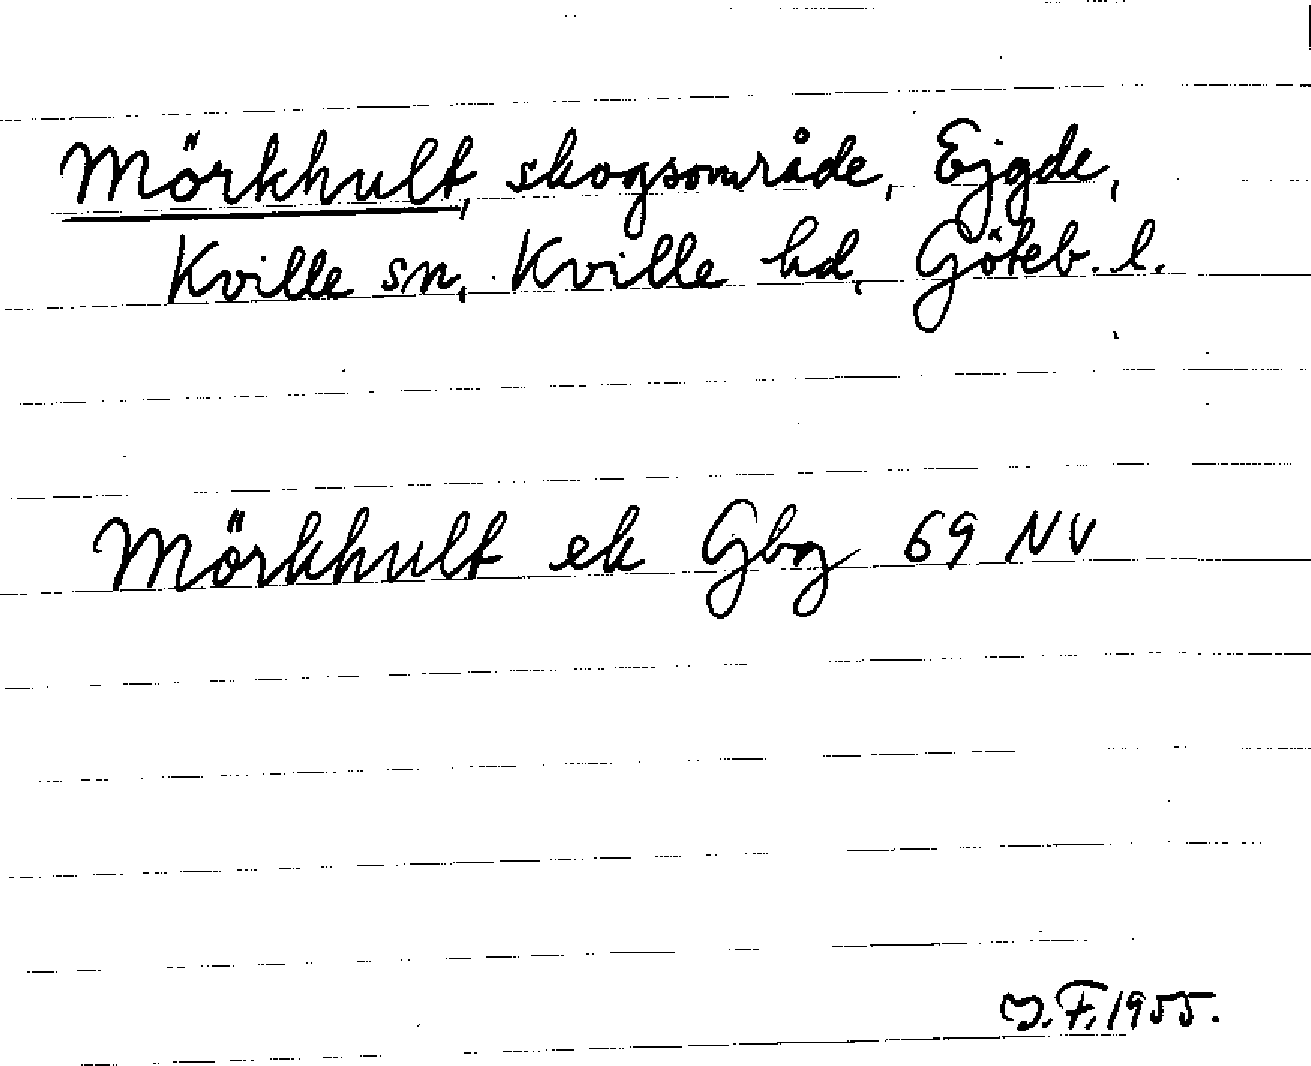 Mörkhult, skogsområde, Ejgde,
Kville sn, Kville hd, Göteb. l.
Mörkhult ek Gbg 69 NV
J.F. 1955.